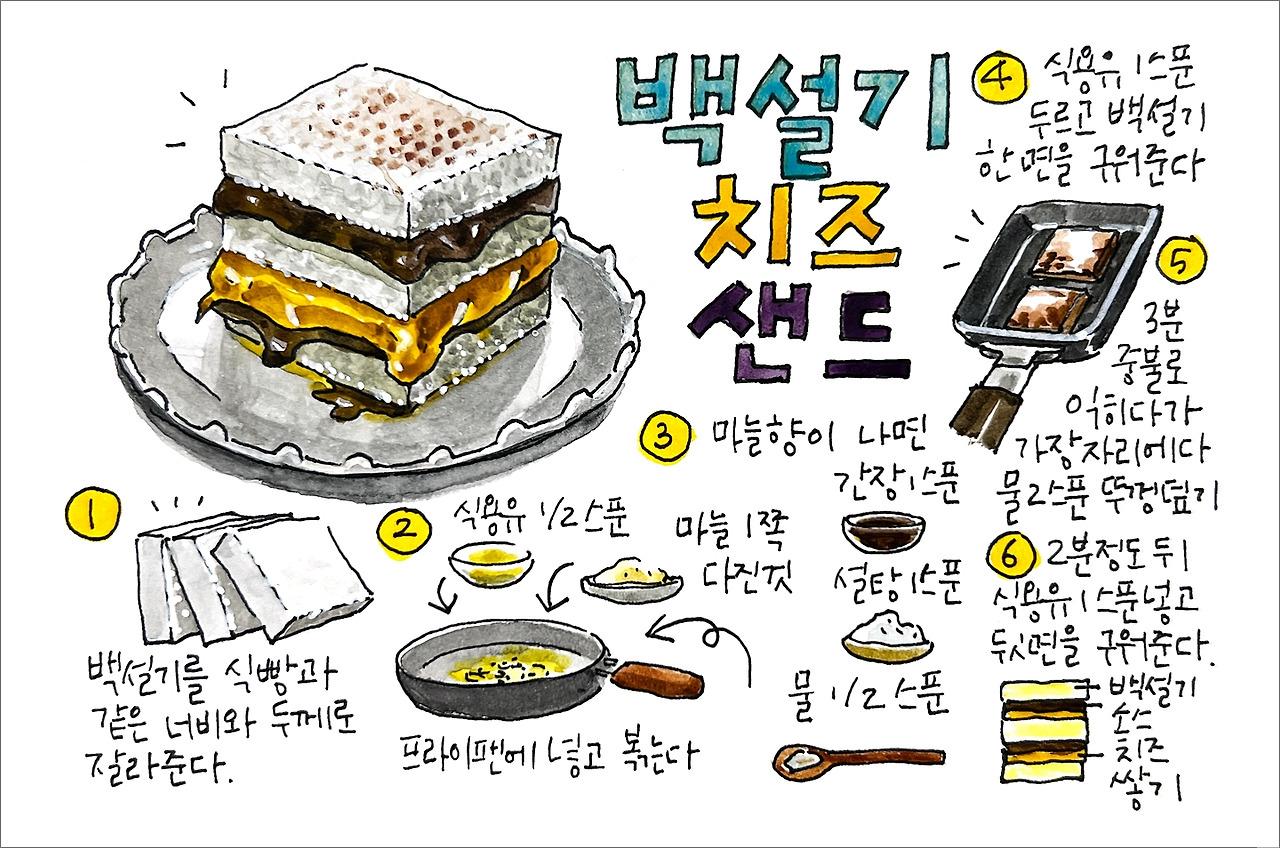 백설기
치즈
샌드
1
백설기를 식빵과
같은 너비와 두께로
잘라준다.
2
식용유 1/2 스푼
마늘 1쪽
다진것
프라이팬에 넣고 볶는다
3
마늘향이 나면
간장 1스푼
설탕 1스푼
물 1/2 스푼
4
식용유 1스푼
두르고 백설기
한면을 구워준다
5
3분
중불로
익히다가
가장자리에다
물2스푼 뚜껑덮기
6
2분정도 뒤
식용유 1스푼 넣고
뒷면을 구워준다.
백설기
소스
치즈
쌓기